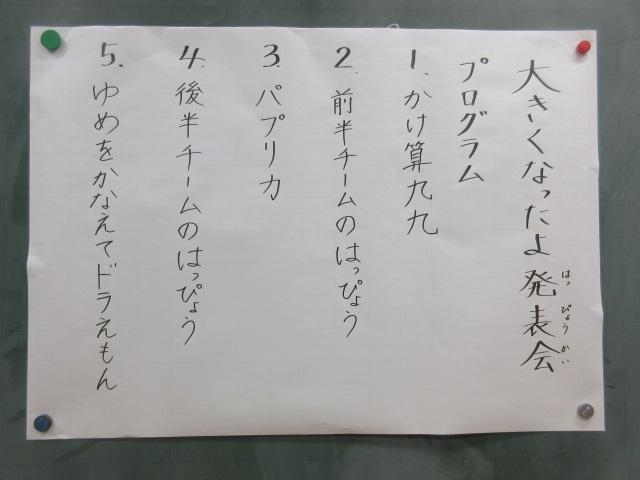 大きくなったよ発表会
はっぴょうかい
プログラム
1、かけ算九九
2、前半チームのはっぴょう
3、パプリカ
4、後半チームのはっぴょう
5、ゆめをかなえてドラえもん